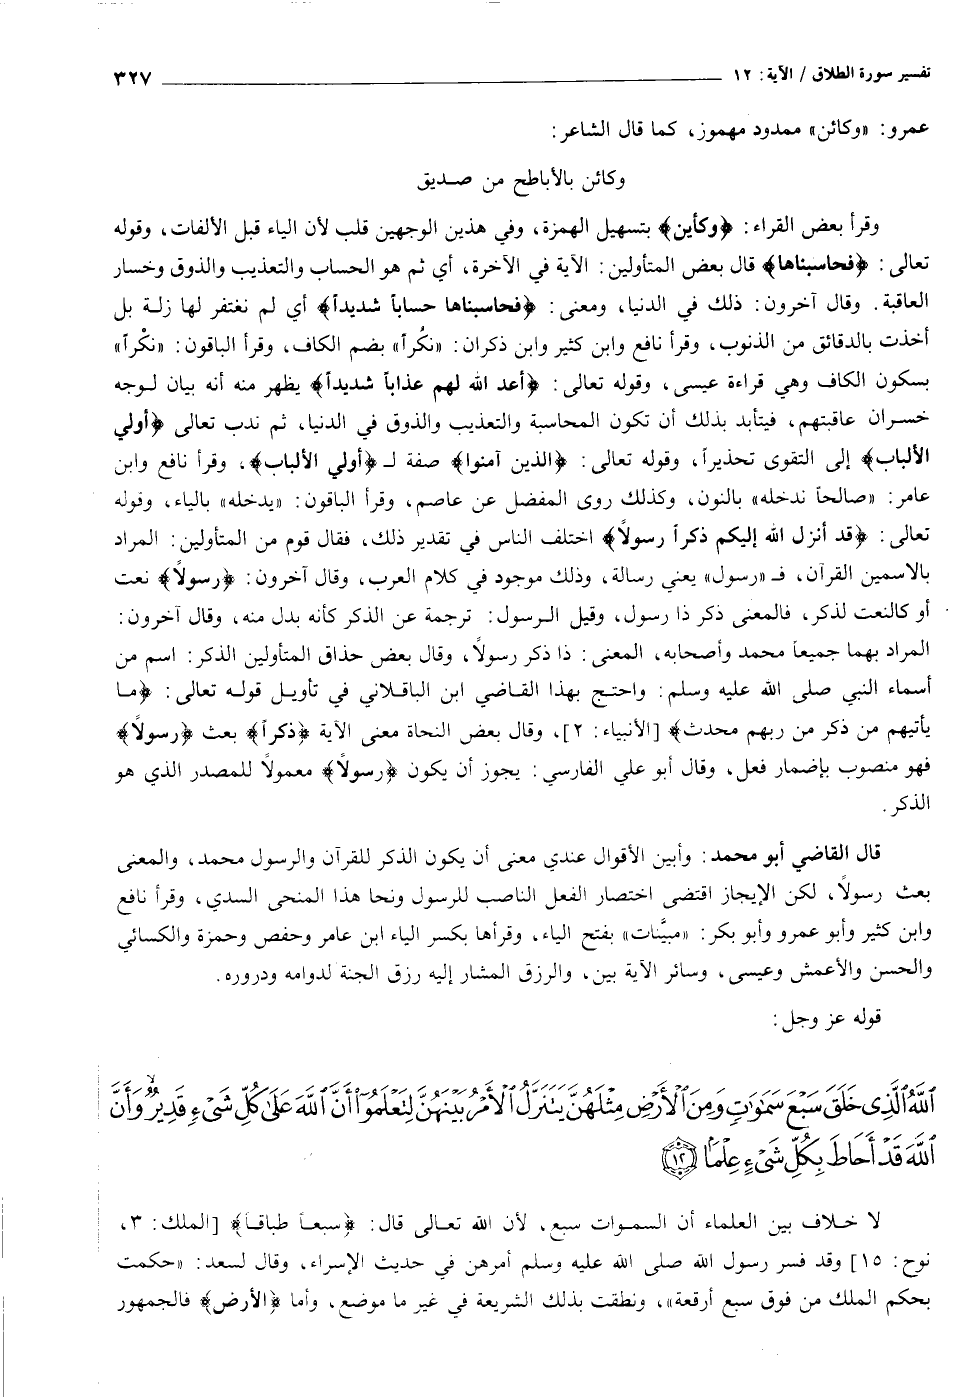 تفسير سورة الطلاق / الآية: ١٢ ٣٢٧
عمرو: «وكائن» ممدود مهموز، كما قال الشاعر:
وكائن بالأباطح من صـديق
وقرأ بعض القراء: ﴿وكأين﴾ بتسهيل الهمزة، وفي هذين الوجهين قلب لأن الياء قبل الألفات، وقوله
تعالى: ﴿فحاسبناها﴾ قال بعض المتأولين: الآية في الآخرة، أي ثم هو الحساب والتعذيب والذوق وخسار
العاقبة. وقال آخرون: ذلك في الدنيا، ومعنى: ﴿فحاسبناها حساباً شديداً﴾ أي لم نغتفر لها زلة بل
أخذت بالدقائق من الذنوب، وقرأ نافع وابن كثير وابن ذكران: «نكُراً» بضم الكاف، وقرأ الباقون: «نكْراً»
بسكون الكاف وهي قراءة عيسى، وقوله تعالى: ﴿أعد الله لهم عذاباً شديداً﴾ يظهر منه أنه بيان لوجه
خسران عاقبتهم، فيتأبد بذلك أن تكون المحاسبة والتعذيب والذوق في الدنيا، ثم ندب تعالى ﴿أولي
الألباب﴾ إلى التقوى تحذيراً، وقوله تعالى: ﴿الذين آمنوا﴾ صفة لـ ﴿أولي الألباب﴾، وقرأ نافع وابن
عامر: «صالحاً ندخله» بالنون، وكذلك روى المفضل عن عاصم، وقرأ الباقون: «يدخله» بالياء، وقوله
تعالى: ﴿قد أنزل الله إليكم ذكراً رسولاً﴾ اختلف الناس في تقدير ذلك، فقال قوم من المتأولين: المراد
بالاسمين القرآن، فـ «رسول» يعني رسالة، وذلك موجود في كلام العرب، وقال آخرون: ﴿رسولاً﴾ نعت
أو كالنعت لذكر، فالمعنى ذكر ذا رسول، وقيل الرسول: ترجمة عن الذكر كأنه بدل منه، وقال آخرون:
المراد بهما جميعاً محمد وأصحابه، المعنى: ذا ذكر رسولاً، وقال بعض حذاق المتأولين الذكر: اسم من
أسماء النبي صلى الله عليه وسلم: واحتج بهذا القاضي ابن الباقلاني في تأويل قوله تعالى: ﴿ما
يأتيهم من ذكر من ربهم محدث﴾ [الأنبياء: ٢]، وقال بعض النحاة معنى الآية ﴿ذكراً﴾ بعث ﴿رسولاً﴾
فهو منصوب بإضمار فعل، وقال أبو علي الفارسي: يجوز أن يكون ﴿رسولاً﴾ معمولاً للمصدر الذي هو
الذكر.
قال القاضي أبو محمد: وأبين الأقوال عندي معنى أن يكون الذكر للقرآن والرسول محمد، والمعنى
بعث رسولاً، لكن الإيجاز اقتضى اختصار الفعل الناصب للرسول ونحا هذا المنحى السدي، وقرأ نافع
وابن كثير وأبو عمرو وأبو بكر: «مبيَّنات» بفتح الياء، وقرأها بكسر الياء ابن عامر وحفص وحمزة والكسائي
والحسن والأعمش وعيسى، وسائر الآية بين، والرزق المشار إليه رزق الجنة لدوامه ودروره.
قوله عز وجل:
ٱللَّهُ ٱلَّذِى خَلَقَ سَبْعَ سَمَٰوَٰتٍ وَمِنَ ٱلْأَرْضِ مِثْلَهُنَّ يَتَنَزَّلُ ٱلْأَمْرُ بَيْنَهُنَّ لِتَعْلَمُوٓا۟ أَنَّ ٱللَّهَ عَلَىٰ كُلِّ شَىْءٍ قَدِيرٌ وَأَنَّ
ٱللَّهَ قَدْ أَحَاطَ بِكُلِّ شَىْءٍ عِلْمًۢا ١٢
لا خلاف بين العلماء أن السموات سبع، لأن الله تعالى قال: ﴿سبعاً طباقاً﴾ [الملك: ٣،
نوح: ١٥] وقد فسر رسول الله صلى الله عليه وسلم أمرهن في حديث الإسراء، وقال لسعد: «حكمت
بحكم الملك من فوق سبع أرقعة»، ونطقت بذلك الشريعة في غير ما موضع، وأما ﴿الأرض﴾ فالجمهور